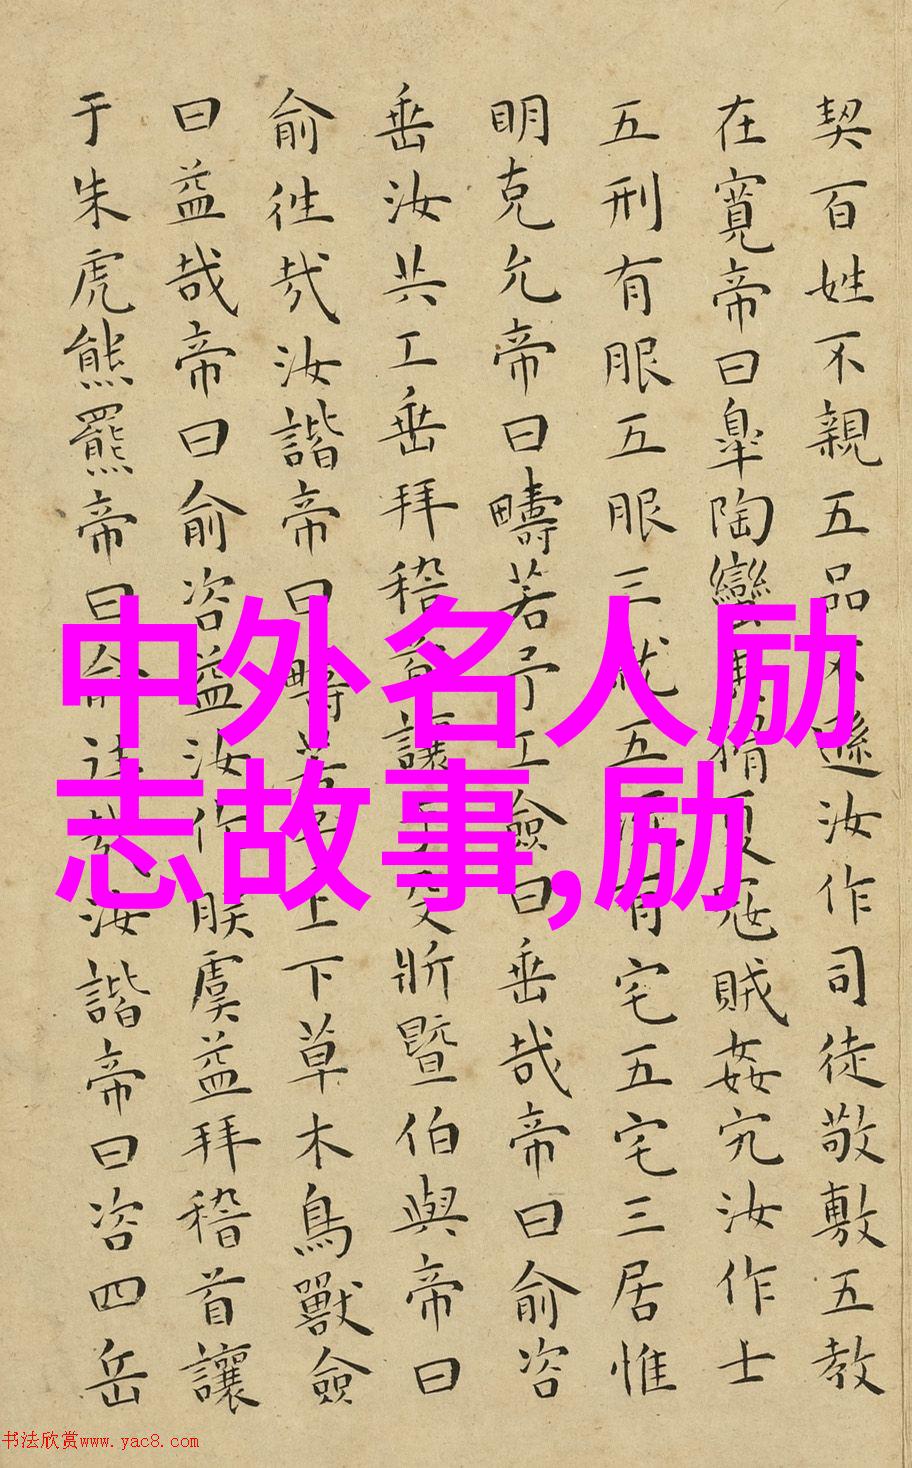 契百姓不親五品不遜汝作司徒敬敷五教
在寬帝曰臯陶蠻夷猾夏寇賊姦宄汝作士
五刑有服五服三就五有宅五宅三居惟
明克允帝曰疇若予工僉曰垂哉帝曰俞咨
垂汝共工垂拜稽首讓殳斨暨伯與帝曰
俞往哉汝諧帝曰疇若上下草木鳥獸僉
曰益哉帝曰俞咨益汝作朕虞益拜稽首讓
于朱虎熊羆帝曰俞往哉汝諧帝曰咨四岳
中外名人励
志故事,励
书法欣赏www.yac8.com